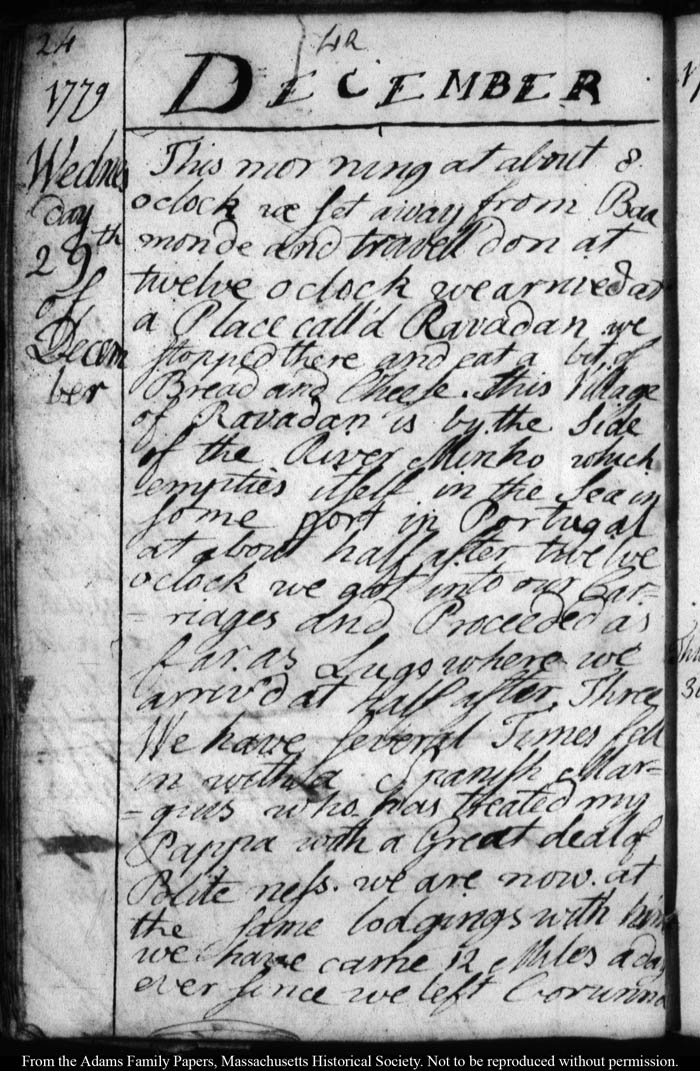 24
42
1779
DECEMBER
Wednes
day
29th
of
Decem
ber
This morning at about 8
oclock we set away from Baa
monde and travell'd on at
twelve oclock we arrived at
a Place call'd Ravadan we
stopped there and eat a bit of
Bread and Cheese. this Village
of Ravadan is by the Side
of the River Minho which
empties itself in the Sea in
some port in Portugal
at about half after twelve
oclock we got into our Car=
= riages and Proceeded as
far as Lugo where we
arriv'd at half after Three
We have several Times fell
in with a Spanish Mar=
= ques who has treated my
Pappa with a Great deal of
Polite ness. we are now at
the same lodgings with him
we have came 12 Miles a day
ever since we left Corunna
From the Adams Family Papers, Massachusetts Historical Society. Not to be reproduced without permission.